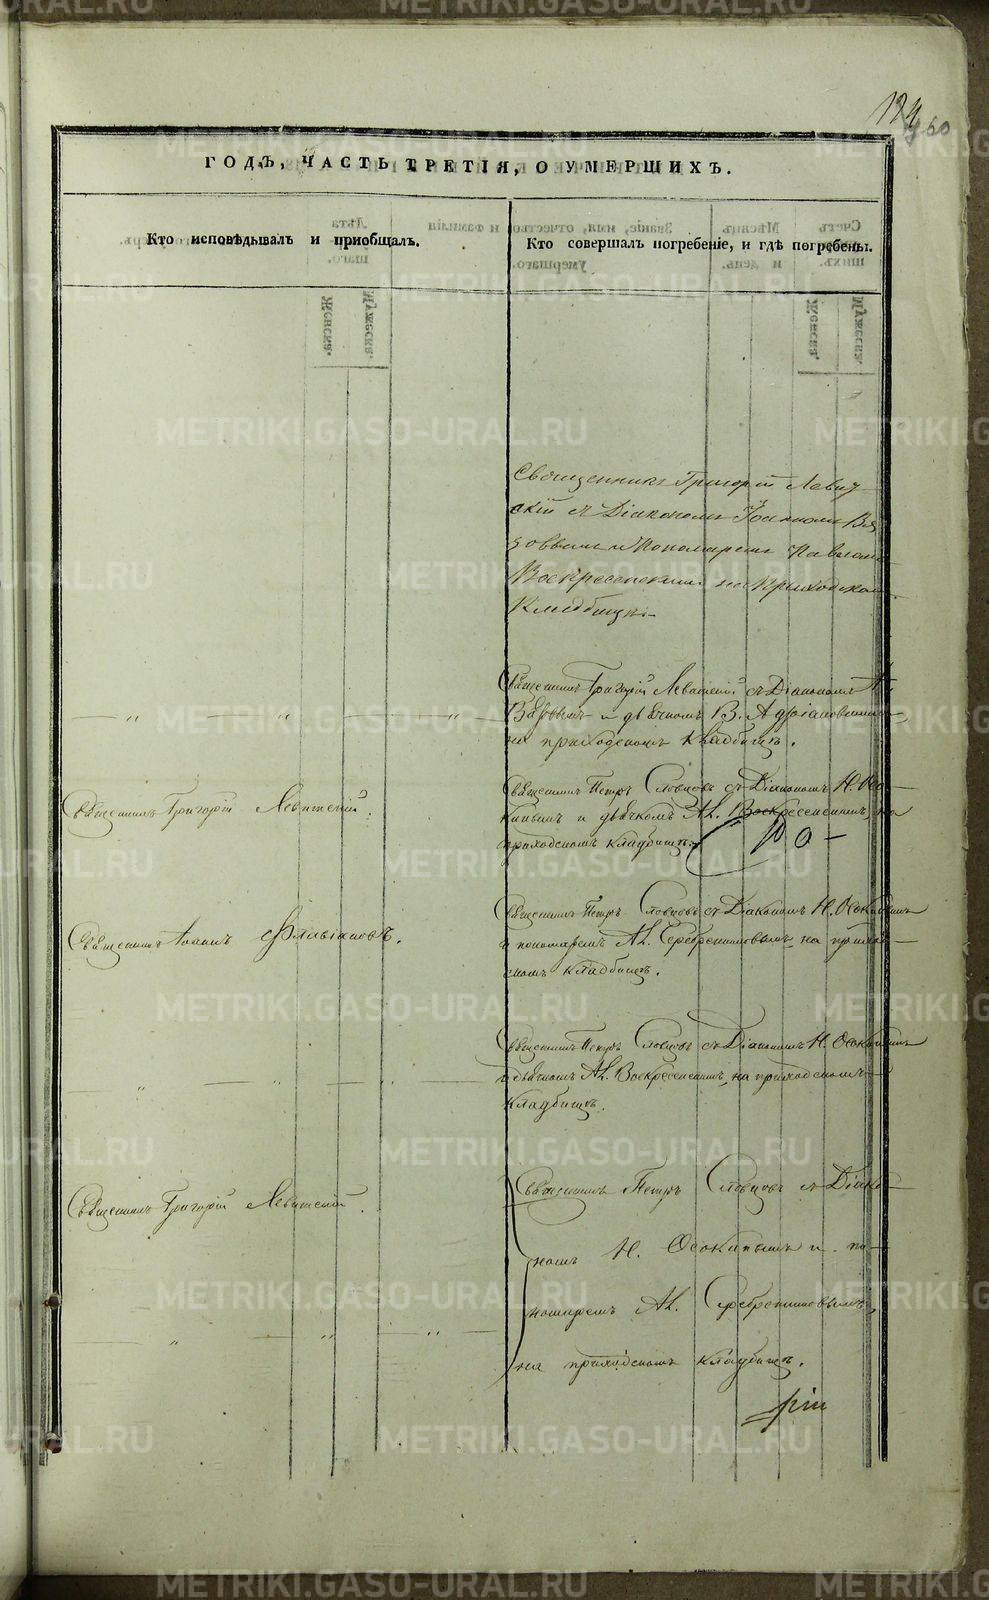 124
460
ГОДЪ, ЧАСТЬ ТРЕТІЯ, О УМЕРШИХЪ.
Кто исповѣдывалъ и пріобщалъ.
Кто совершалъ погребеніе, и гдѣ погребены.
Священникъ Григорій Левит
скій съ Діакономъ Іоанномъ Вя
зовымъ и Пономаремъ Павломъ
Воскресенскимъ на Приходском
Кладбищѣ
Священникъ Григорій Левитскій съ Діакономъ
и дьячкомъ В. Адріановскимъ
на приходскомъ кладбищѣ.
Священникъ Григорій Левитскій.
Священникъ Петръ Словцовъ съ Діакономъ Н. Осо-
кинымъ и дьячкомъ Ал. Воскресенскимъ, на
приходскомъ кладбищѣ.
Священникъ Іоаннъ Флавіановъ.
Священникъ Петръ Словцовъ съ Діакономъ Н. Осокинымъ
и пономаремъ Ал. Серебренниковымъ на приход-
скомъ кладбищѣ.
Священникъ Петръ Словцовъ съ Діакономъ Н. Осокинымъ
и дьячкомъ Ал. Воскресенскимъ, на приходскомъ
кладбищѣ.
Священникъ Григорій Левитскій.
Священникъ Петръ Словцовъ съ Діако-
номъ Н. Осокинымъ и по-
номаремъ Ал. Серебренниковымъ,
на приходскомъ кладбищѣ.
METRIKI.GASO-URAL.RU